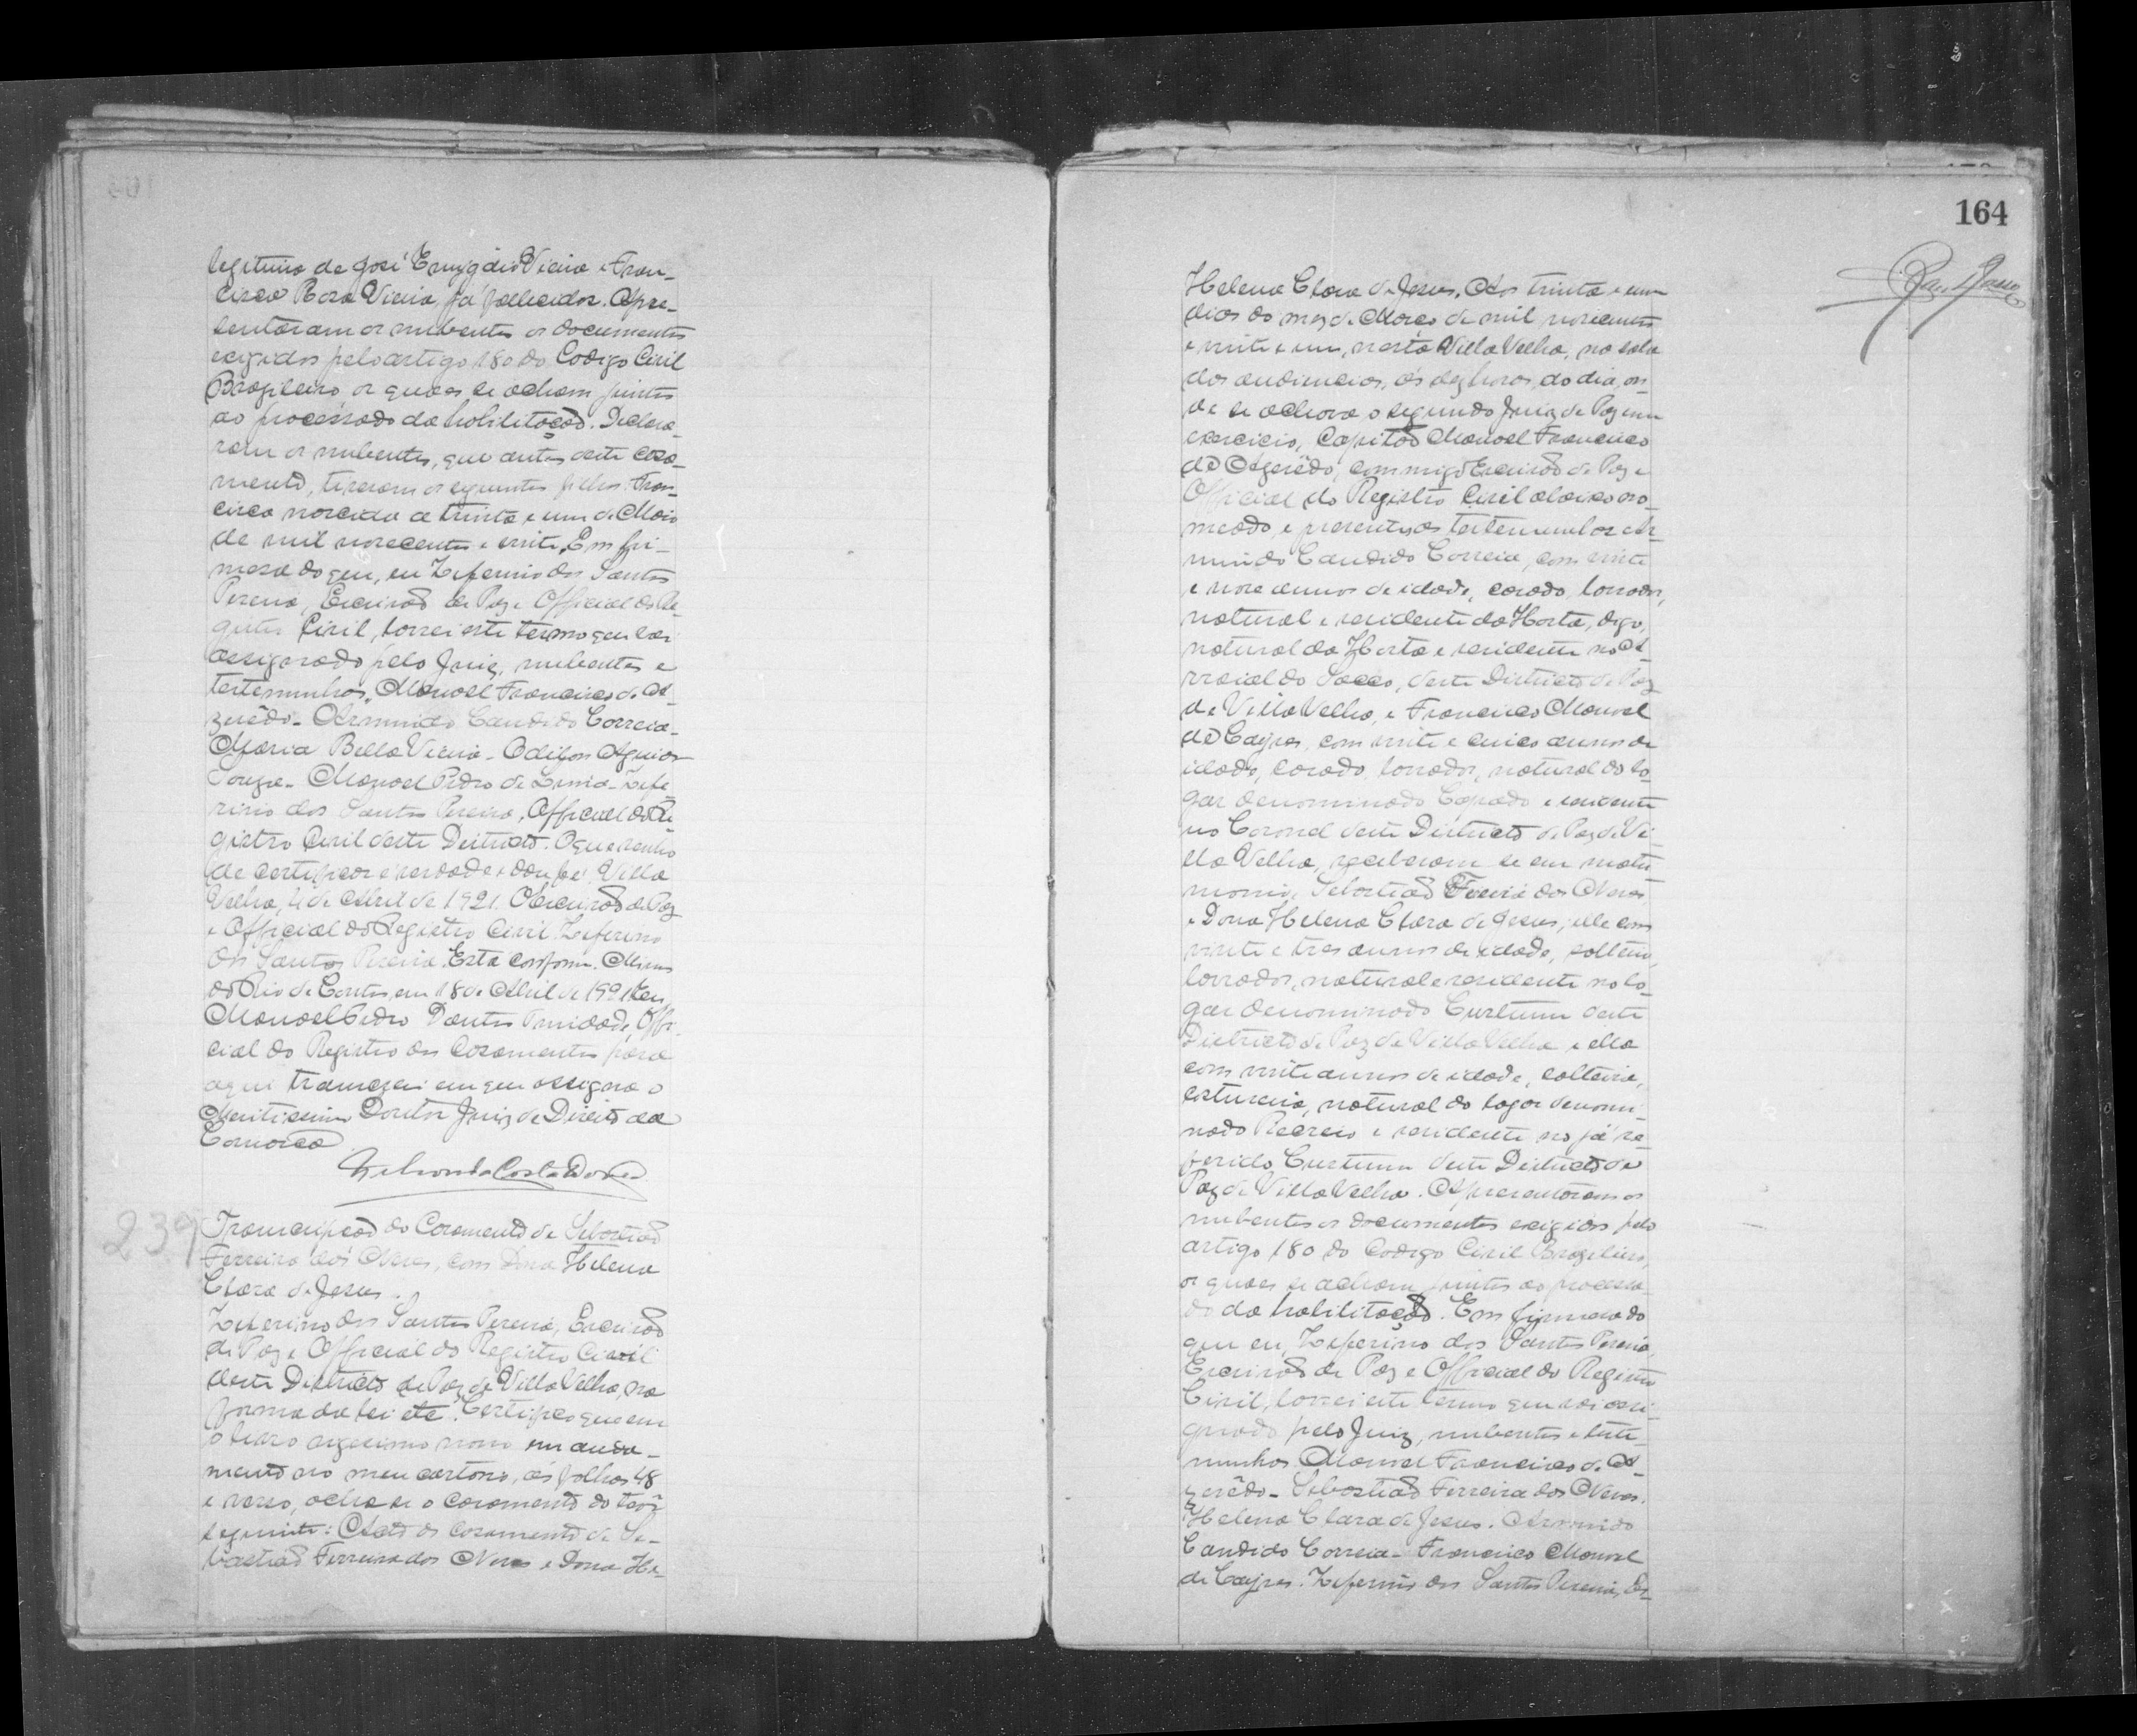 legitima de José Emygdio Vieira e Fran-
cisca Rosa Vieira, já fallecidos. Apre-
sentaram os nubentes os documentos
exigidos pelo artigo 180 do Codigo Civil
Brazileiro, os quaes se acham juntos
ao processado da habilitação. Declara-
ram os nubentes, que antes deste casa-
mento, tiveram os seguintes filhos: Fran-
cisca nascida a trinta e um de Maio
de mil novecentos e vinte. Em fir-
meza do que, eu Zeferino dos Santos
Pereira, Escrivão de Paz e Official do Re-
gistro Civil, lavrei este termo que vai
assignado pelo Juiz, nubentes e
testemunhas. Manoel Francisco de A-
zevêdo - Arminido Candido Correia -
Maria Bella Vieira - Odilon Aguiar
Souza - Manoel Pedro de Lima - Zefe-
rino dos Santos Pereira, Official do Re-
gistro Civil deste Districto. O que venho
de certificar é verdade e dou fé. Villa
Velha, 4 de Abril de 1921. O Escrivão de Paz
e Official do Registro Civil Zeferino
dos Santos Pereira. Está conforme. Minas
do Rio de Contas, em 18 de Abril de 1921. Eu,
Manoel Pedro Dantas Trindade, Offi-
cial do Registro dos Casamentos para
aqui transcrevi em que assigna o
Meritissimo Doutor Juiz de Direito da
Comarca.
da Costa
239 Transcripção do Casamento de Sebastião
Ferreira dos Neves, com Dona Helena
Clara de Jesus.
Zeferino dos Santos Pereira, Escrivão
de Paz e Official do Registro Civil
deste Districto de Paz de Villa Velha, na
forma da lei etc. Certifico que em
o livro vigesimo nono em anda-
mento no meu cartorio, ás folhas 48
e verso, acha-se o casamento do teôr
seguinte: Acto do casamento de Se-
bastião Ferreira dos Neves e Dona He-
164
Helena Clara de Jesus. Aos trinta e um
dias do mez de Março de mil novecentos
e vinte e um, nesta Villa Velha, na sala
das audiencias, ás dez horas do dia, on-
de se achava o segundo Juiz de Paz em
exercicio, Capitão Manoel Francisco
de Azevêdo, commigo Escrivão de Paz e
Official do Registro Civil abaixo no-
meado e presentes as testemunhas Ar-
minido Candido Correia, com vinte
e nove annos de idade, casado, lavrador,
natural e residente da Horta, digo,
natural da Horta e residente no A-
rraial do Sacco, deste Districto de Paz
de Villa Velha, e Francisco Manoel
de Cayres, com vinte e cinco annos de
idade, casado, lavrador, natural do lo-
gar denominado e residente
no Coronel deste Districto de Paz de Vi-
lla Velha, receberam-se em matri-
monio, Sebastião Ferreira dos Neves
e Dona Helena Clara de Jesus; elle com
vinte e tres annos de idade, solteiro,
lavrador, natural e residente no lo-
gar denominado Curtume deste
Districto de Paz de Villa Velha e ella
com vinte annos de idade, solteira,
costureira, natural do logar denomi-
nado Recreio e residente no já re-
ferido Curtume deste Districto de
Paz de Villa Velha. Apresentaram os
nubentes os documentos exigidos pelo
artigo 180 do Codigo Civil Brazileiro,
os quaes se acham juntos ao processa-
do da habilitação. Em firmeza do
que eu, Zeferino dos Santos Pereira,
Escrivão de Paz e Official do Registro
Civil, lavrei este termo que vai assi-
gnado pelo Juiz, nubentes e teste-
munhas. Manoel Francisco de A-
zevêdo - Sebastião Ferreira dos Neves.
Helena Clara de Jesus. Arminido
Candido Correia - Francisco Manoel
de Cayres. Zeferino dos Santos Pereira, Es-